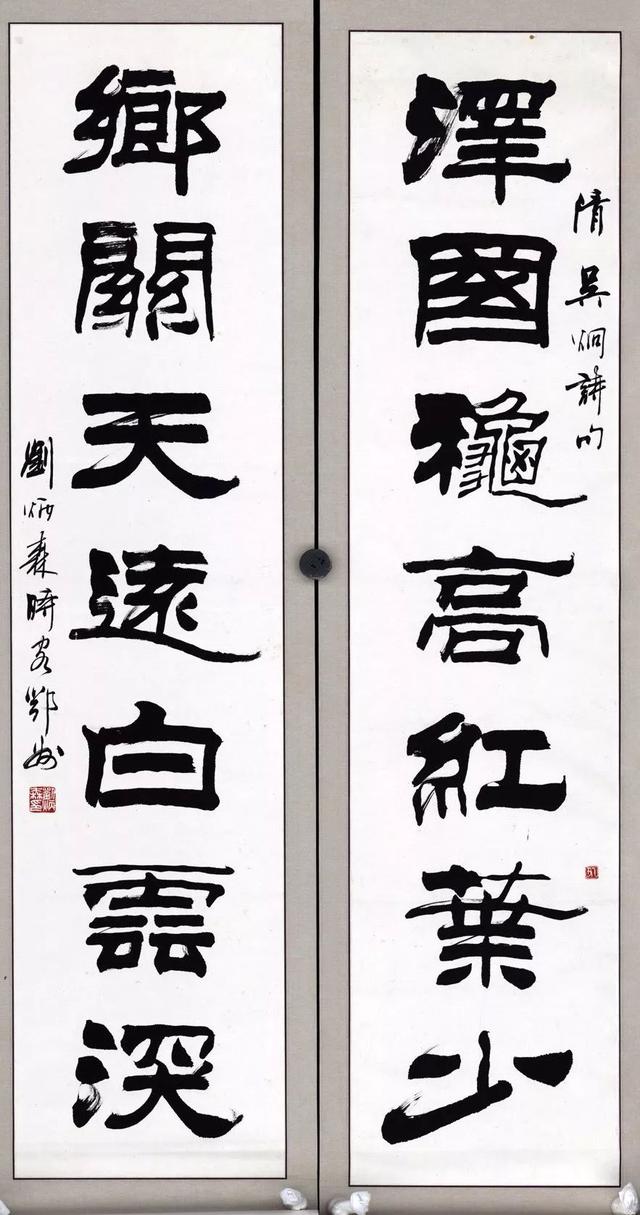 隋吳炯詩句
澤國龝高紅葉少
鄉關天遠白雲深
劉炳森時客鄂州
劉炳森印